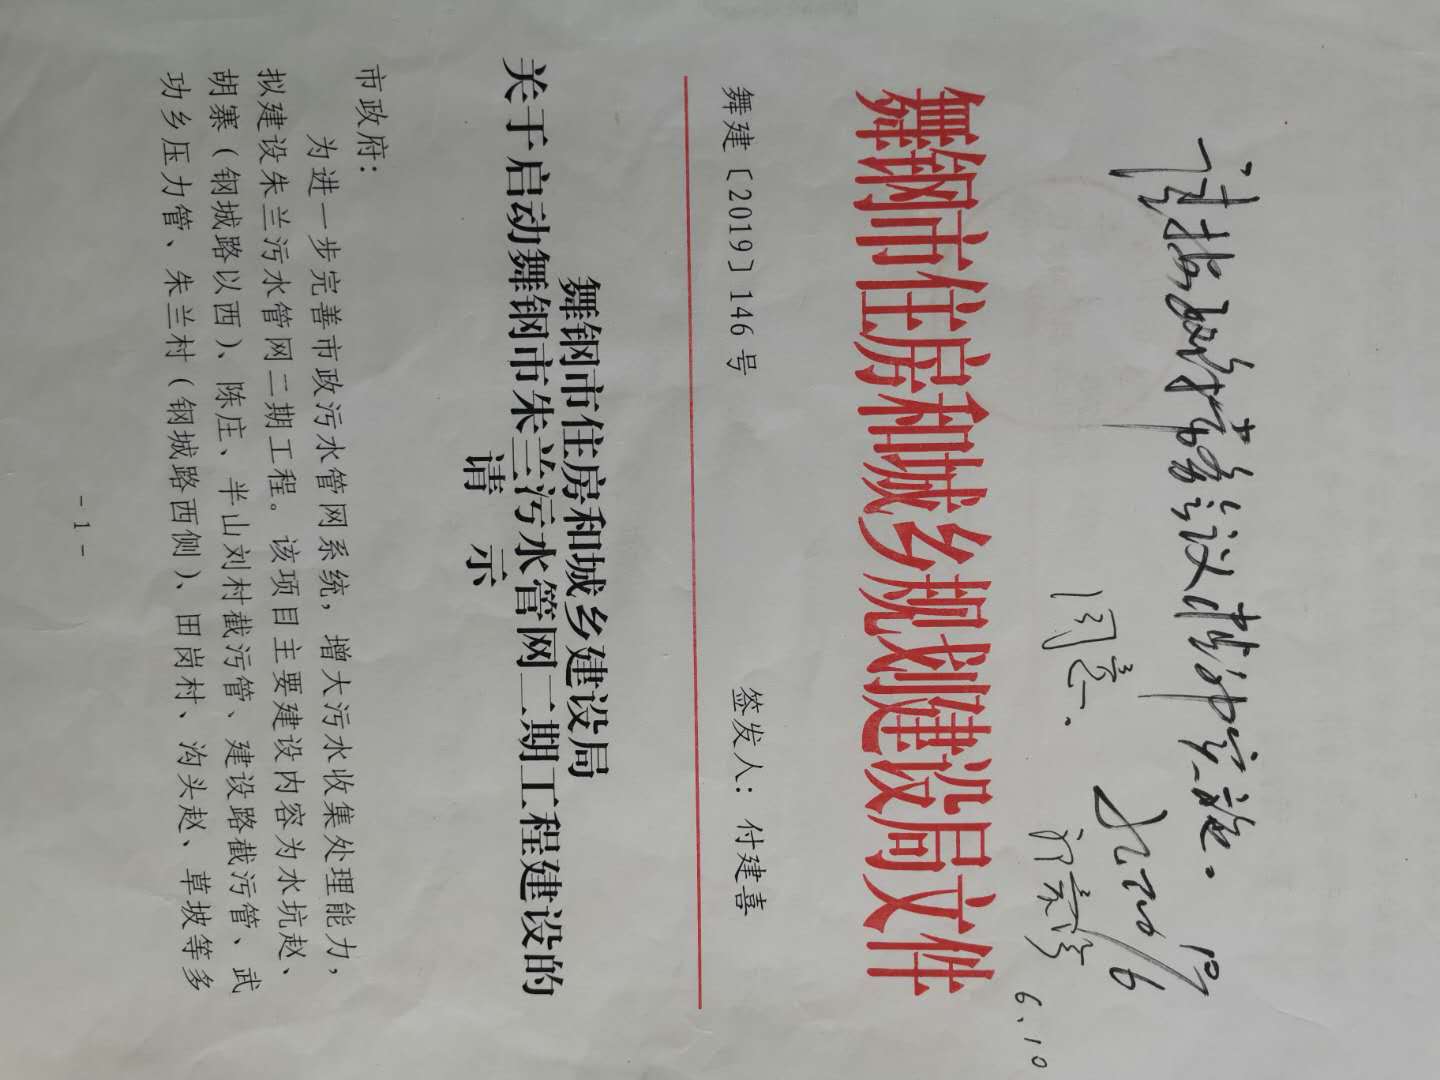 同意.
6.10
舞钢市住房和城乡规划建设局文件
舞建〔2019〕146号 签发人：付建喜
舞钢市住房和城乡建设局
关于启动舞钢市朱兰污水管网二期工程建设的
请 示
市政府：
为进一步完善市政污水管网系统，增大污水收集处理能力，
拟建设朱兰污水管网二期工程。该项目主要建设内容为水坑赵、
胡寨（钢城路以西）、陈庄、半山刘村截污管、建设路截污管、武
功乡压力管、朱兰村（钢城路西侧）、田岗村、沟头赵、草坡等多
- 1 -